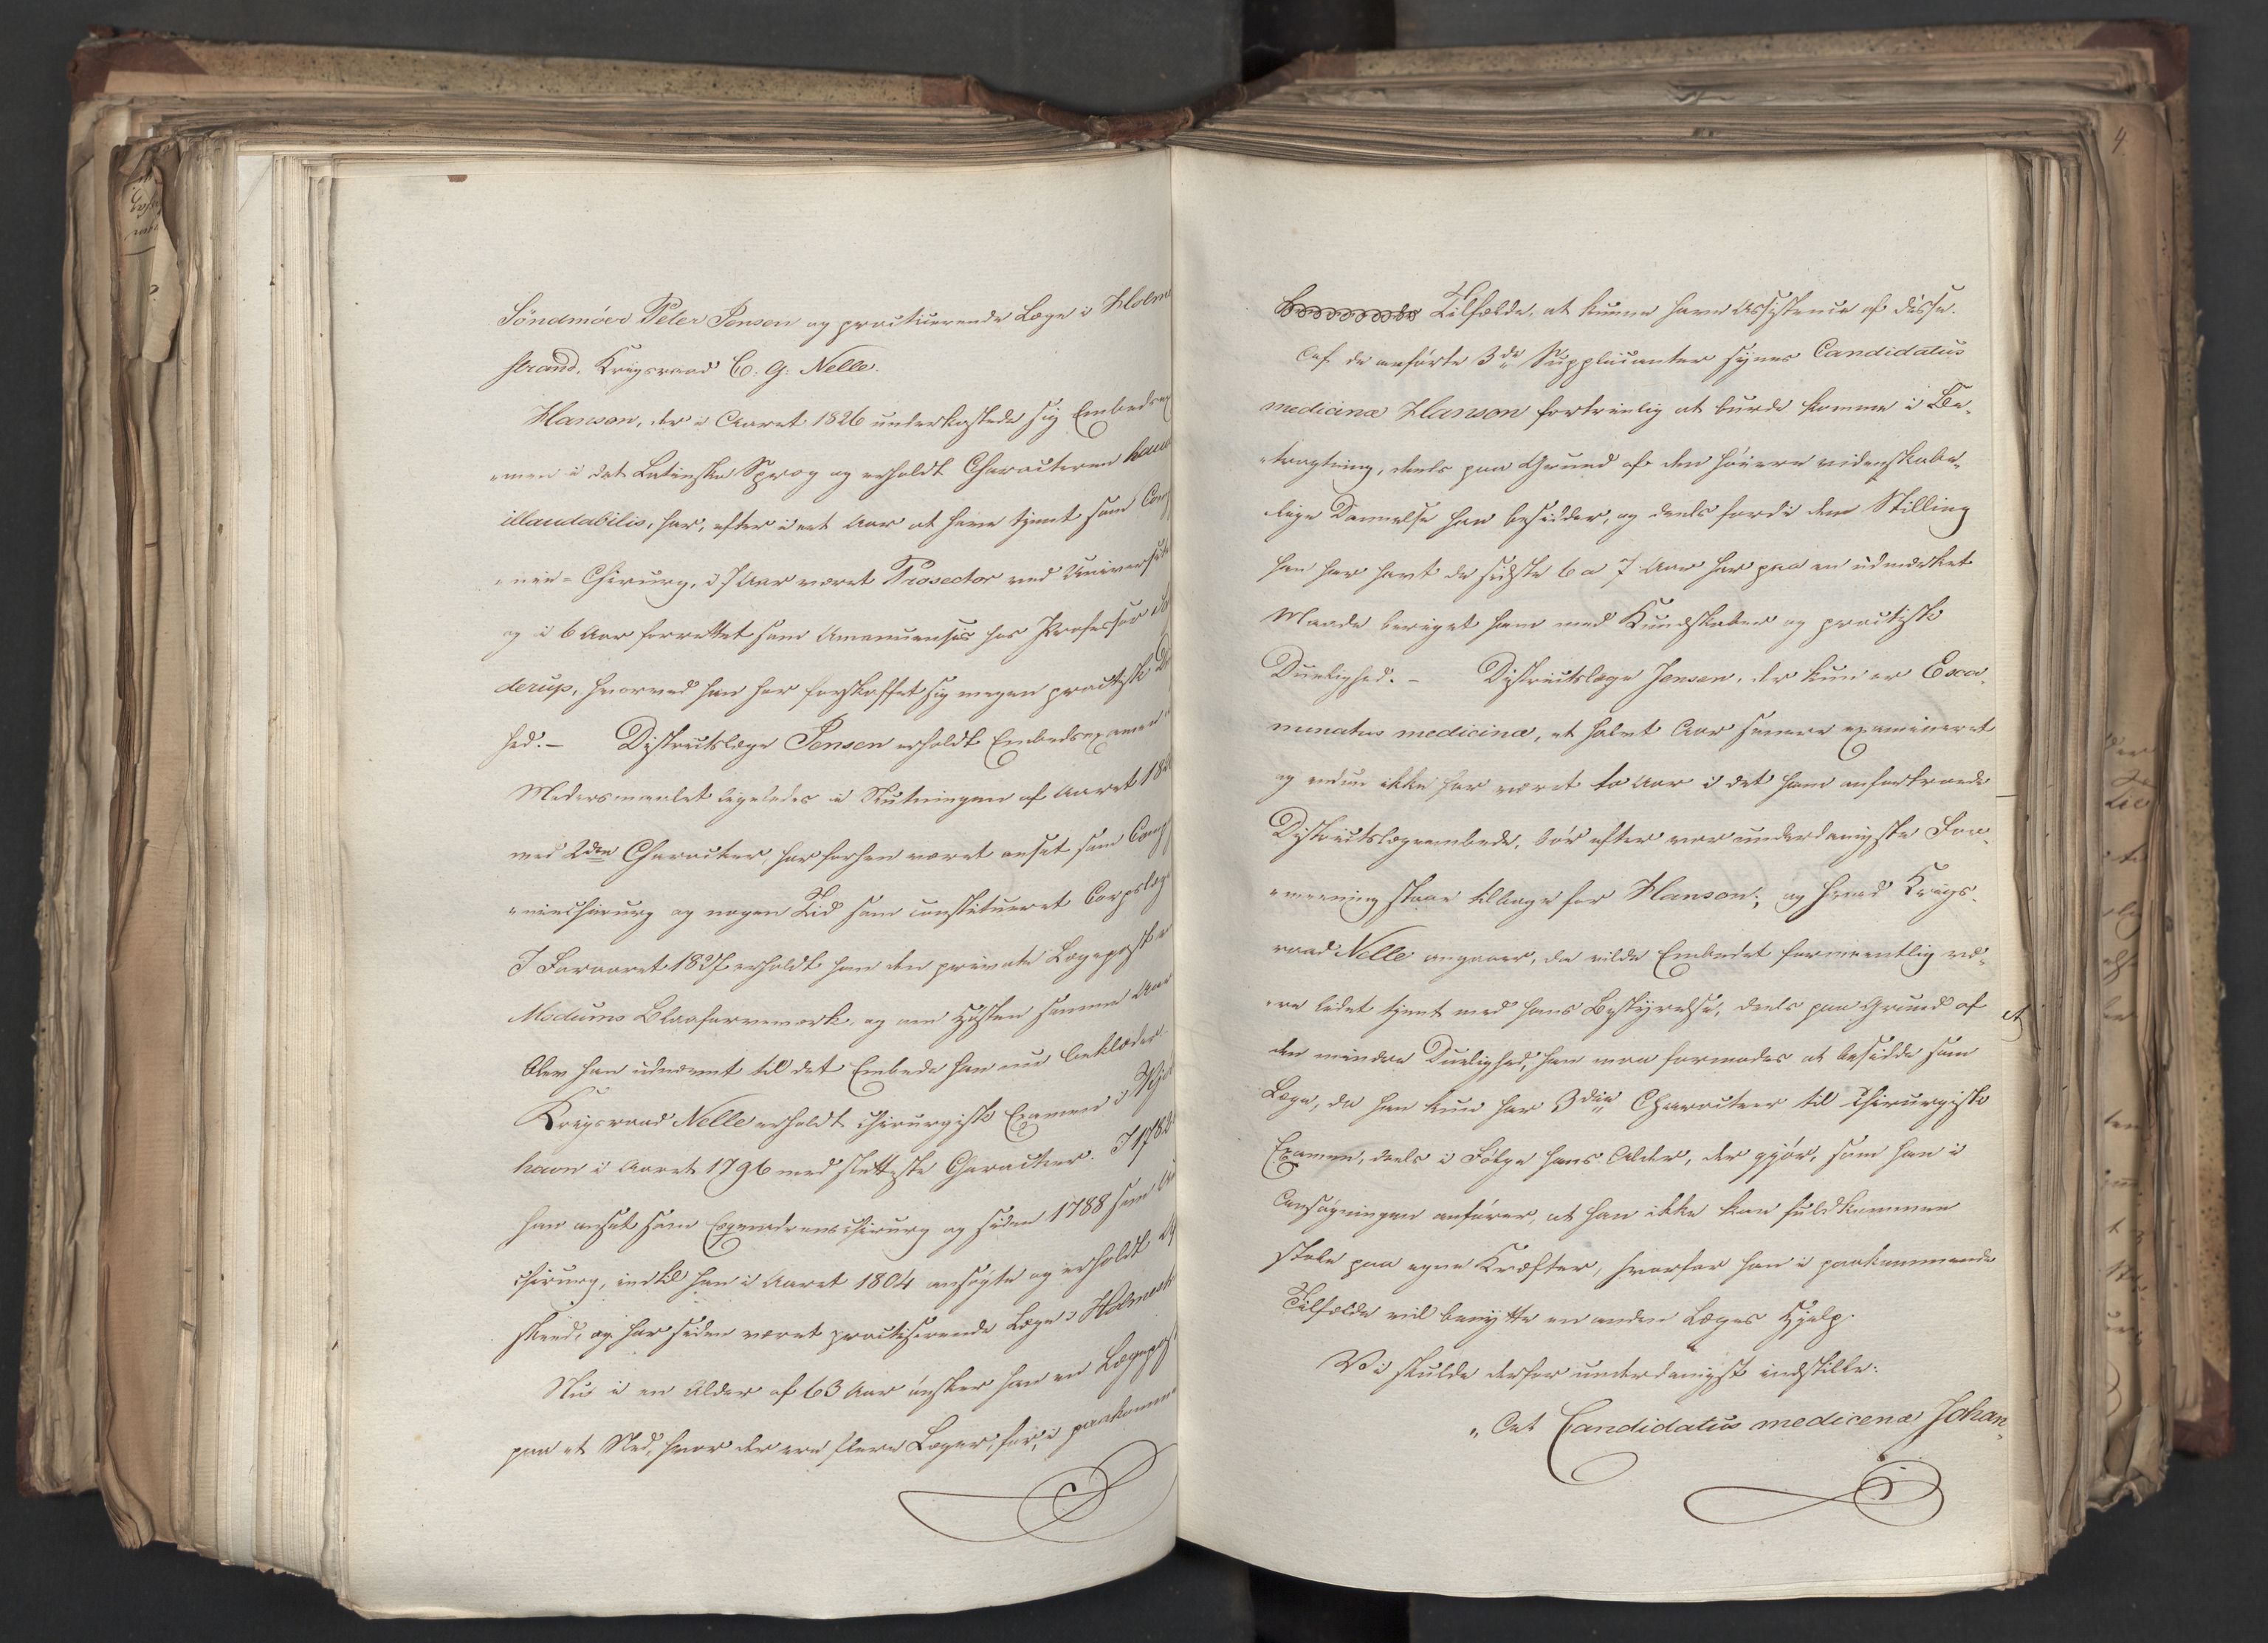 Söndmöer Peter Jensen og practicerende Læge i Holme
strand, Krigsraad C. G. Nelle.
Hanson, der i Aaret 1826 underkastede sig Embedsex
„men i det Latinske Sprog og erholdt Characteren haud
illaudabilis, har, efter i eet Aar at have tjent som Comp
„nie-Chirurg, i 7 Aar været Prosector ved Universite
og i 6 Aar forrettet som Amanuensis hos Professor
derup, hvorved han har forskaffet sig megen practisk Du
hed. — Districtslæge Jensen erholdt Embedsexamen i
Modersmaalet ligeledes i Slutningen af Aaret 182
med 2den Character, har forhen været ansat som Comp
„niechirurg og nogen Tid som constitueret Corpslæge
I Foraaret 1827 erholdt han den private Lægepost v
Modums Blaafarveværk, og om Høsten samme Aar
blev han udnævnt til det Embede han nu beklæder.
Krigsraad Nelle erholdt chirurgisk Examen i Kjöb
havn i Aaret 1796 med sletteste Character. I 1782
han ansat som Esqvadronschirurg og siden 1788 som
chirurg, indtil han i Aaret 1804 ansøgte og erholdt Af
skeed, og har siden været practiserende Læge i Holmest
Nu i en Alder af 63 Aar ønsker han en Lægepost
paa et Sted, hvor der ere flere Læger, for, i paakomme
Tilfælde, at kunne have Assistence af disse.
Af de anførte 3de Supplicanter synes Candidatus
medicinæ Hanson fortrinlig at burde komme i Be„
„tragtning, deels paa Grund af den höiere videnskabe„
lige Dannelse han besidder, og deels fordi den Stilling
han har havt de sidste 6 a 7 Aar har paa en udmærket
Maade beriget ham med Kundskaber og practisk
Duelighed. — Districtslæge Jensen, der kun er Exa„
minatus medicinæ, et halvt Aar senere examineret
og endnu ikke har været to Aar i det ham anfortroede
Districtslægeembede, bör efter vor underdanigste For„
„meening staae tilbage for Hanson; og hvad Krigs„
raad Nelle angaaer, da vilde Embedet formeentlig væ„
„re lidet tjent med hans Bestyrelse, deels paa Grund af
den mindre Duelighed, han maa formodes at besidde som
Læge, da han kun har 3die Character til chirurgisk
Examen, deels i Følge hans Alder, der gjör, som han i
Ansøgningen anfører, at han ikke kan fuldkommen
stole paa egne Kræfter, hvorfor han i paakommende
Tilfælde vil benytte en anden Læges Hjelp.
Vi skulde derfor underdanigst indstille:
„At Candidatus medicinæ Johan„